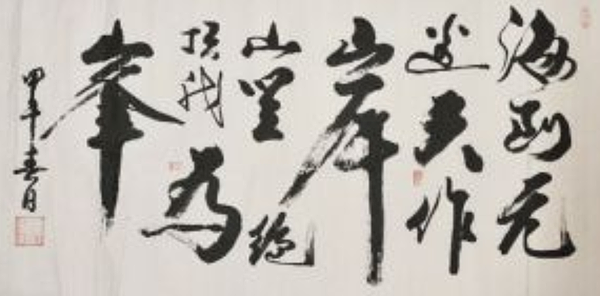 海到无
边天作
岸
山登絶
顶我為
峯
甲午春月